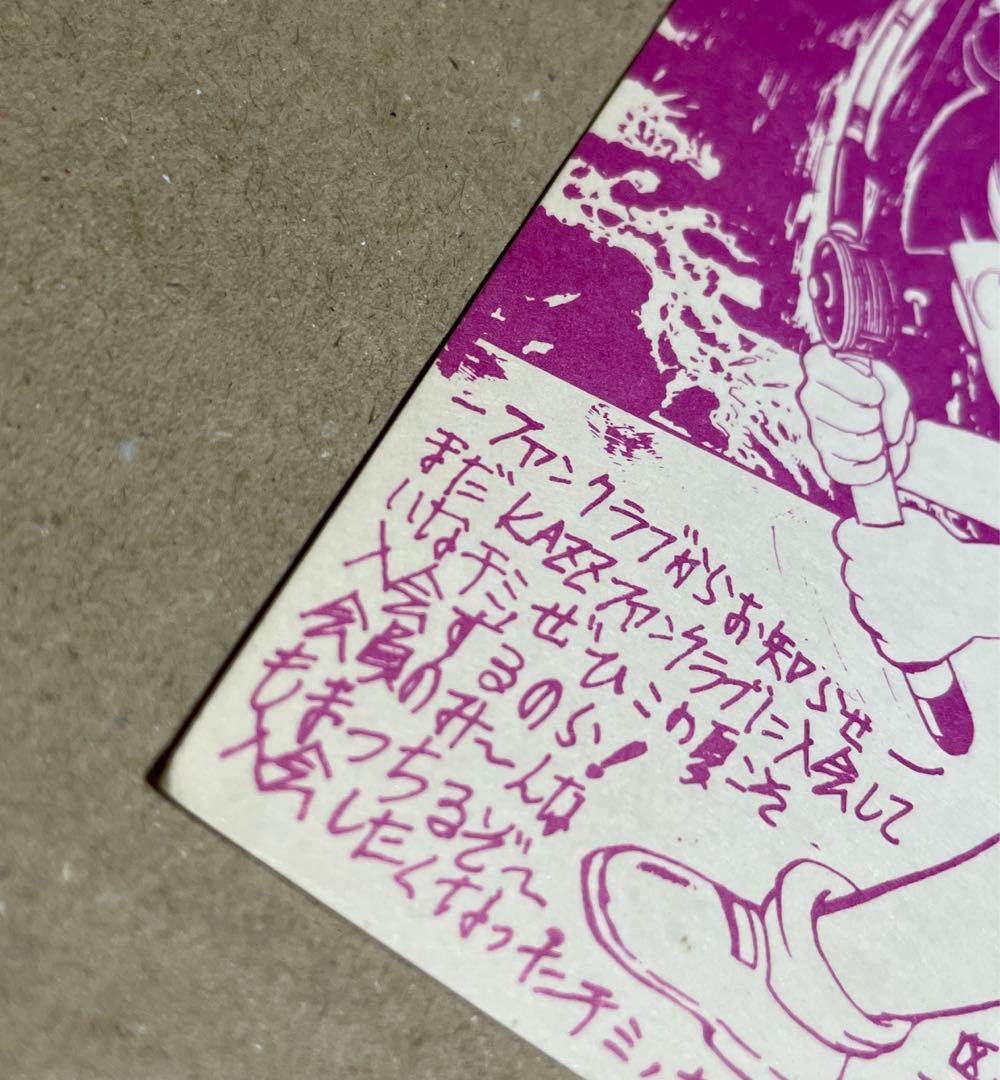 -ファンクラブからお知らせー
まだKAZZファンクラブに入会して
いなチミ ぜひこの夏こそ
入会するのら!
会員のみ〜んな
もまっちるぞ〜
入会したくなったチミ